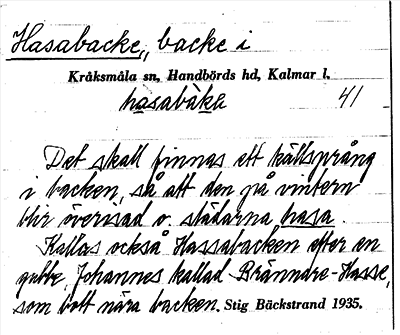 Hasabacke, backe i
Kråksmåla sn, Handbörds hd, Kalmar l.
hasabàka 41
Det skall finnas ett källsprång
i backen, så att den på vintern
blir överisad o. slädarna hasa.
Kallas också Hassabacken efter en
gubbe, Johannes kallad Brännare-Hasse,
som bott nära backen. Stig Bäckstrand 1935.